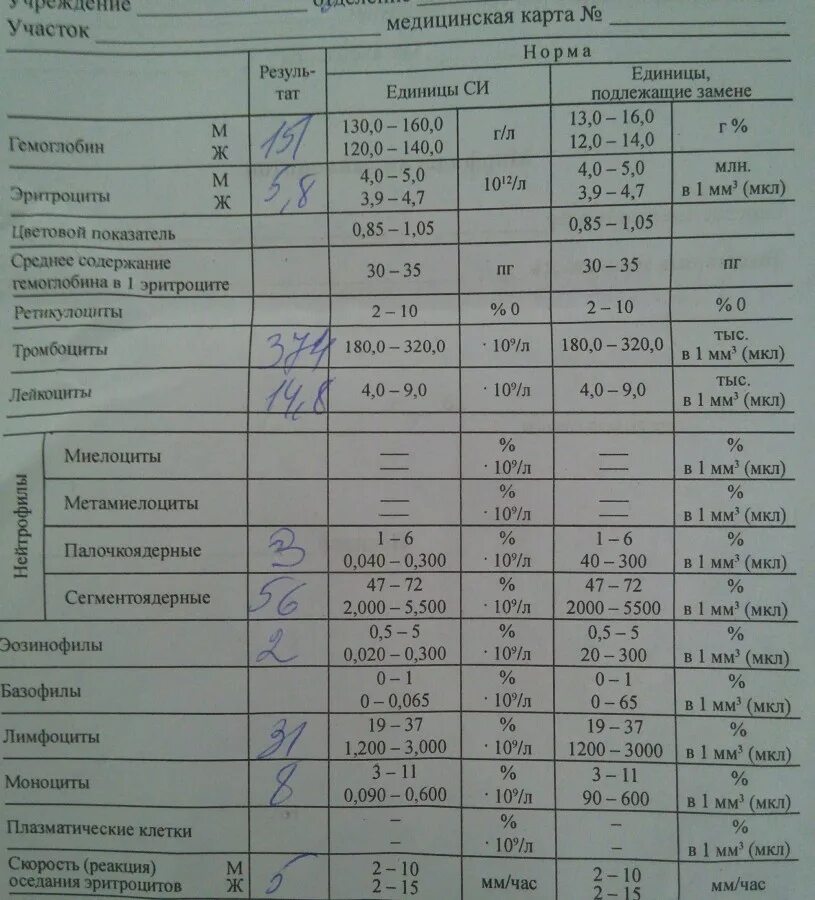 Учреждение ____ отделение ____
Участок ____ медицинская карта № ____
Резуль-
тат
Норма
Единицы СИ
Единицы,
подлежащие замене
Гемоглобин М Ж 151 130,0 – 160,0 120,0 – 140,0 г/л 13,0 – 16,0 12,0 – 14,0 г %
Эритроциты М Ж 5,8 4,0 – 5,0 3,9 – 4,7 10¹²/л 4,0 – 5,0 3,9 – 4,7 млн. в 1 мм³ (мкл)
Цветовой показатель 0,85 – 1,05 0,85 – 1,05
Среднее содержание
гемоглобина в 1 эритроците 30 – 35 пг 30 – 35 пг
Ретикулоциты 2 – 10 % 0 2 – 10 % 0
Тромбоциты 374 180,0 – 320,0 · 10⁹/л 180,0 – 320,0 тыс. в 1 мм³ (мкл)
Лейкоциты 14,8 4,0 – 9,0 · 10⁹/л 4,0 – 9,0 тыс. в 1 мм³ (мкл)
Нейтрофилы
Миелоциты — — % · 10⁹/л — — % в 1 мм³ (мкл)
Метамиелоциты — — % · 10⁹/л — — % в 1 мм³ (мкл)
Палочкоядерные 3 1 – 6 0,040 – 0,300 % · 10⁹/л 1 – 6 40 – 300 % в 1 мм³ (мкл)
Сегментоядерные 56 47 – 72 2,000 – 5,500 % · 10⁹/л 47 – 72 2000 – 5500 % в 1 мм³ (мкл)
Эозинофилы 2 0,5 – 5 0,020 – 0,300 % · 10⁹/л 0,5 – 5 20 – 300 % в 1 мм³ (мкл)
Базофилы 0 – 1 0 – 0,065 % · 10⁹/л 0 – 1 0 – 65 % в 1 мм³ (мкл)
Лимфоциты 31 19 – 37 1,200 – 3,000 % · 10⁹/л 19 – 37 1200 – 3000 % в 1 мм³ (мкл)
Моноциты 8 3 – 11 0,090 – 0,600 % · 10⁹/л 3 – 11 90 – 600 % в 1 мм³ (мкл)
Плазматические клетки – – % · 10⁹/л – – % в 1 мм³ (мкл)
Скорость (реакция)
оседания эритроцитов М Ж 5 2 – 10 2 – 15 мм/час 2 – 10 2 – 15 мм/час